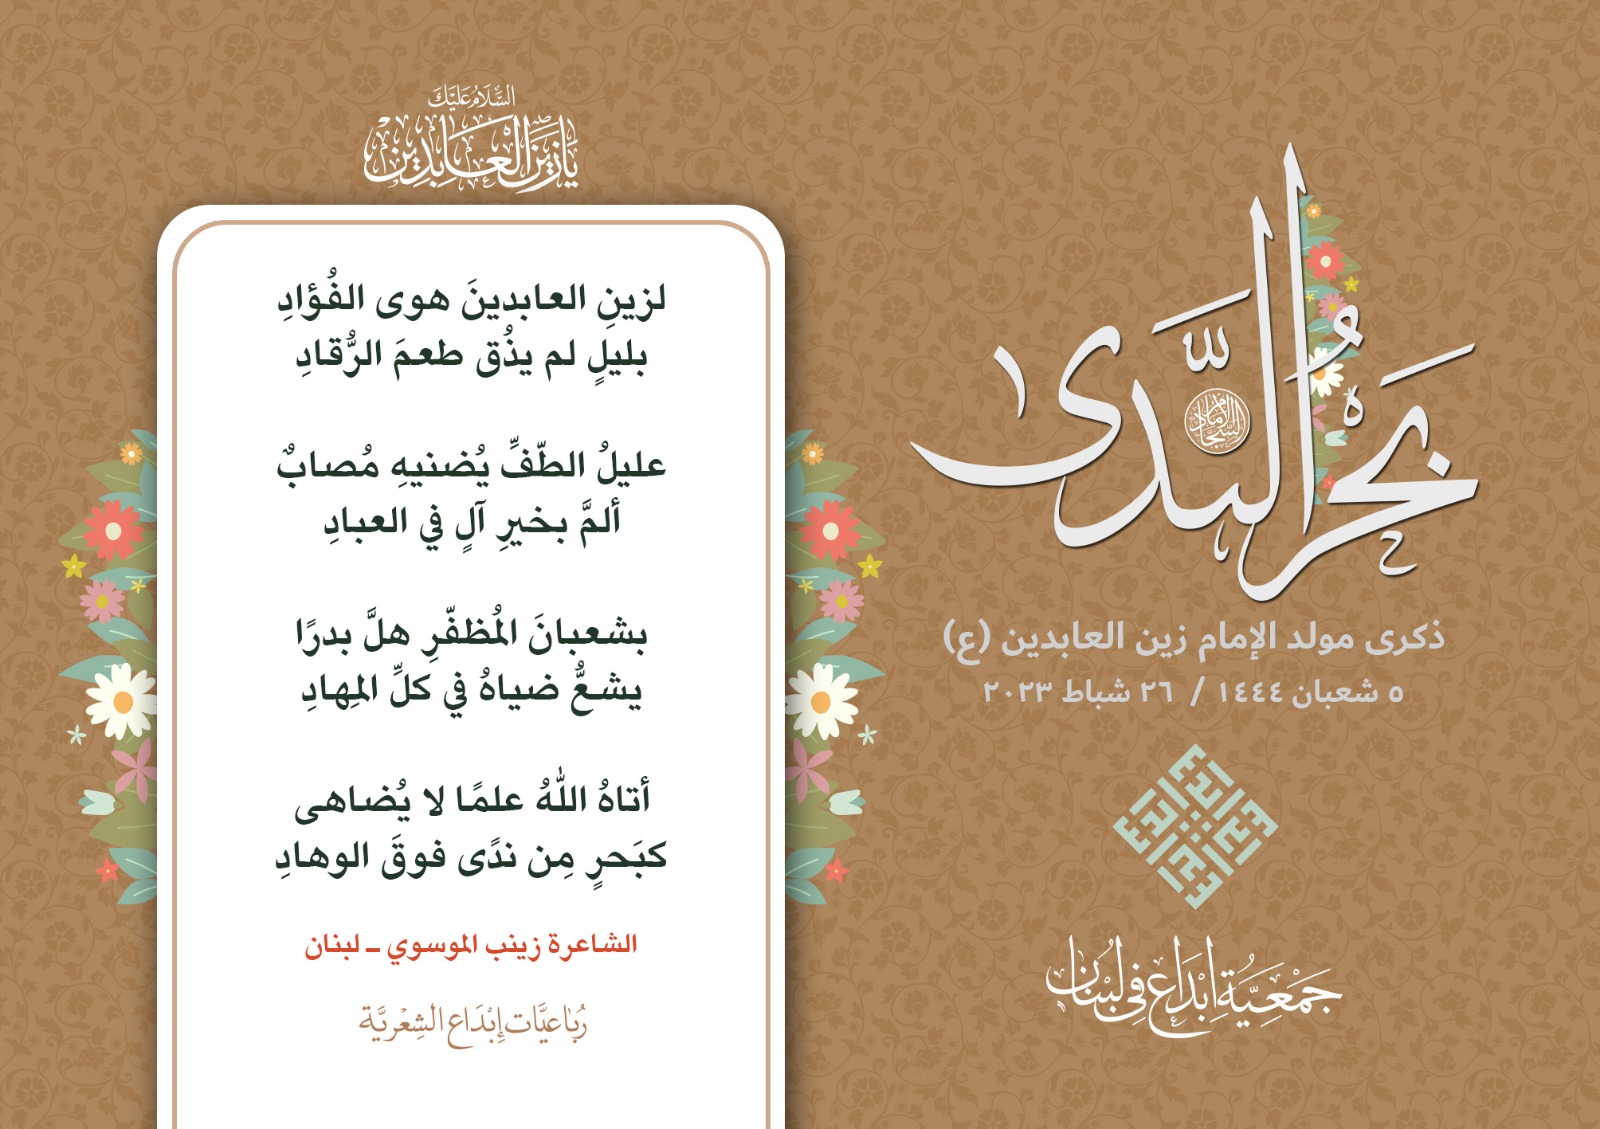 بَحْرُ النَّدَى
الإمام السجاد
ذكرى مولد الإمام زين العابدين (ع)
٥ شعبان ١٤٤٤ / ٢٦ شباط ٢٠٢٣
إبداع
جَمْعِيَّة إِبْدَاع فِي لُبْنَان
السَّلَامُ عَلَيْكَ
يَا زَيْنَ الْعَابِدِينَ
لزينِ العابدينَ هوى الفُؤادِ
بليلٍ لم يذُق طعمَ الرُّقادِ
عليلُ الطّفِّ يُضنيهِ مُصابٌ
ألمَّ بخيرِ آلٍ في العبادِ
بشعبانَ المُظفّرِ هلَّ بدرًا
يشعُّ ضياهُ في كلِّ المِهادِ
أتاهُ اللهُ علمًا لا يُضاهى
كبَحرٍ مِن ندًى فوقَ الوهادِ
الشاعرة زينب الموسوي ـ لبنان
رُبَاعيَّات إِبْدَاع الشِعْريَّة